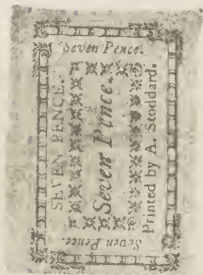 Seven Pence.
SEVEN PENCE.
Seven Pence.
Printed by A. Stoddard.
Seven Pence.